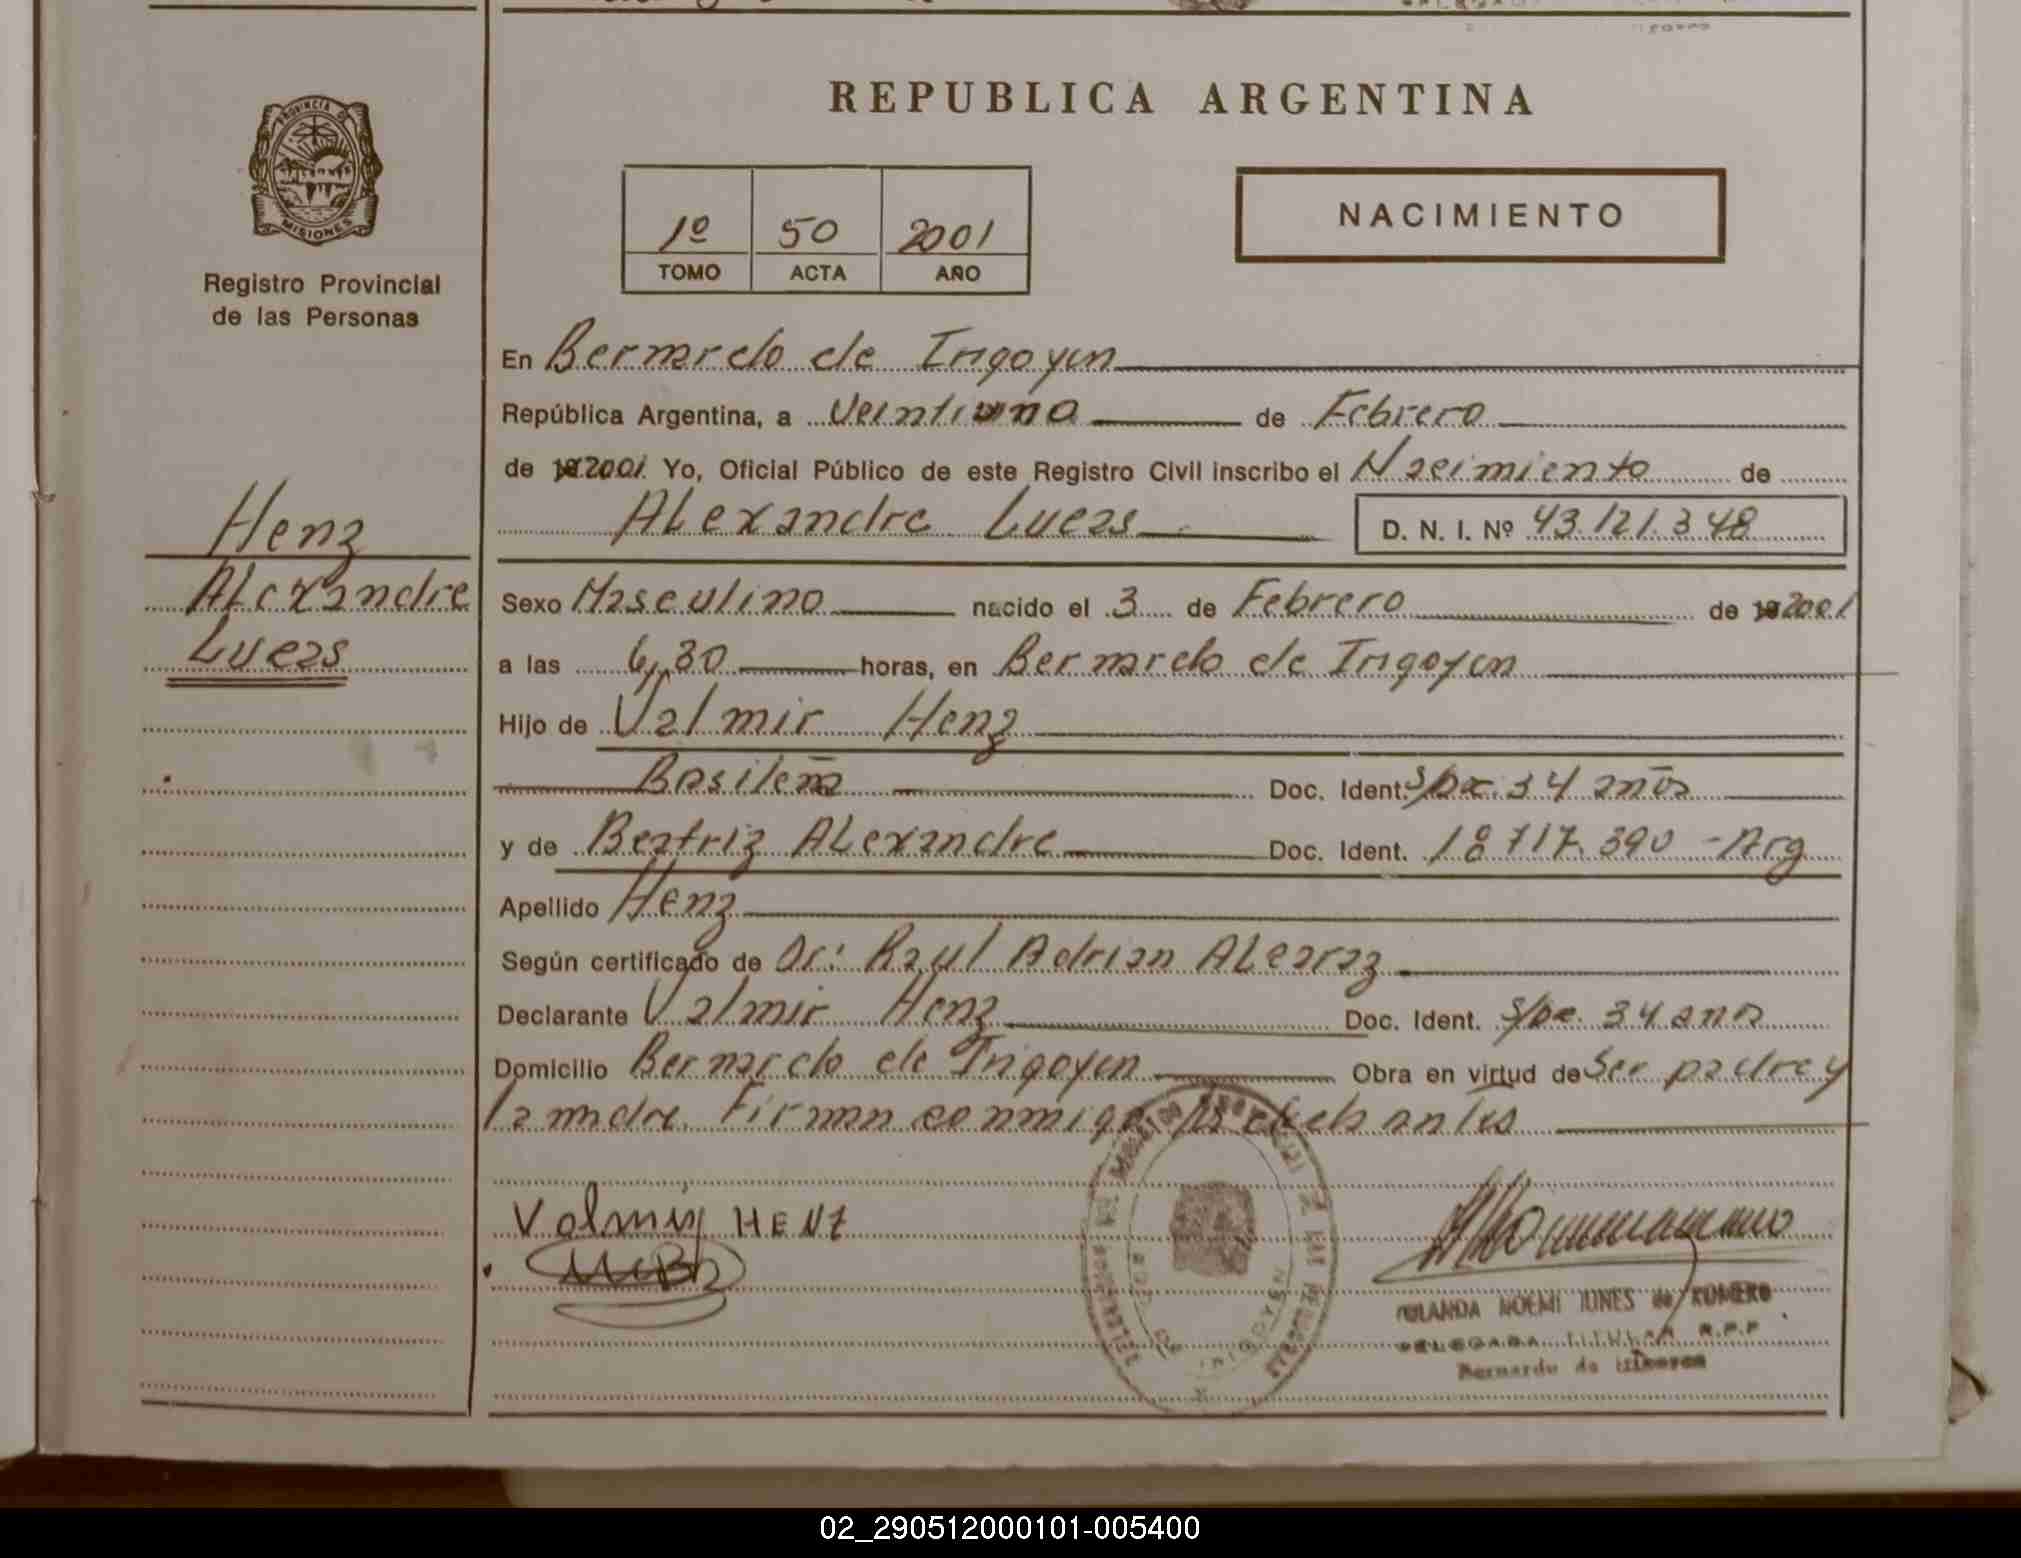 REPUBLICA ARGENTINA
PROVINCIA DE
MISIONES
Registro Provincial
de las Personas
1º 50 2001
TOMO ACTA AÑO
NACIMIENTO
Henz
Alexandre
Lucas
En Bernardo de Irigoyen
República Argentina, a Veintiuno de Febrero
de 2001. Yo, Oficial Público de este Registro Civil inscribo el Nacimiento de
Alexandre Lucas D. N. I. Nº 43.121.348
Sexo Masculino nacido el 3 de Febrero de 2001
a las 6,30 horas, en Bernardo de Irigoyen
Hijo de Valmir Henz
Brasileña Doc. Ident. 34 años
y de Beatriz Alexandre Doc. Ident. 18.717.390 - Arg
Apellido Henz
Según certificado de Dr: Raul Adrian Alcaraz
Declarante Valmir Henz Doc. Ident. 34 años
Domicilio Bernardo de Irigoyen Obra en virtud de Ser padre y
la madre. Firman conmigo
Valmir HENZ
NOEMI de ROMERO
DELEGADA TITULAR R.P.P
Bernardo de Irigoyen
02_290512000101-005400